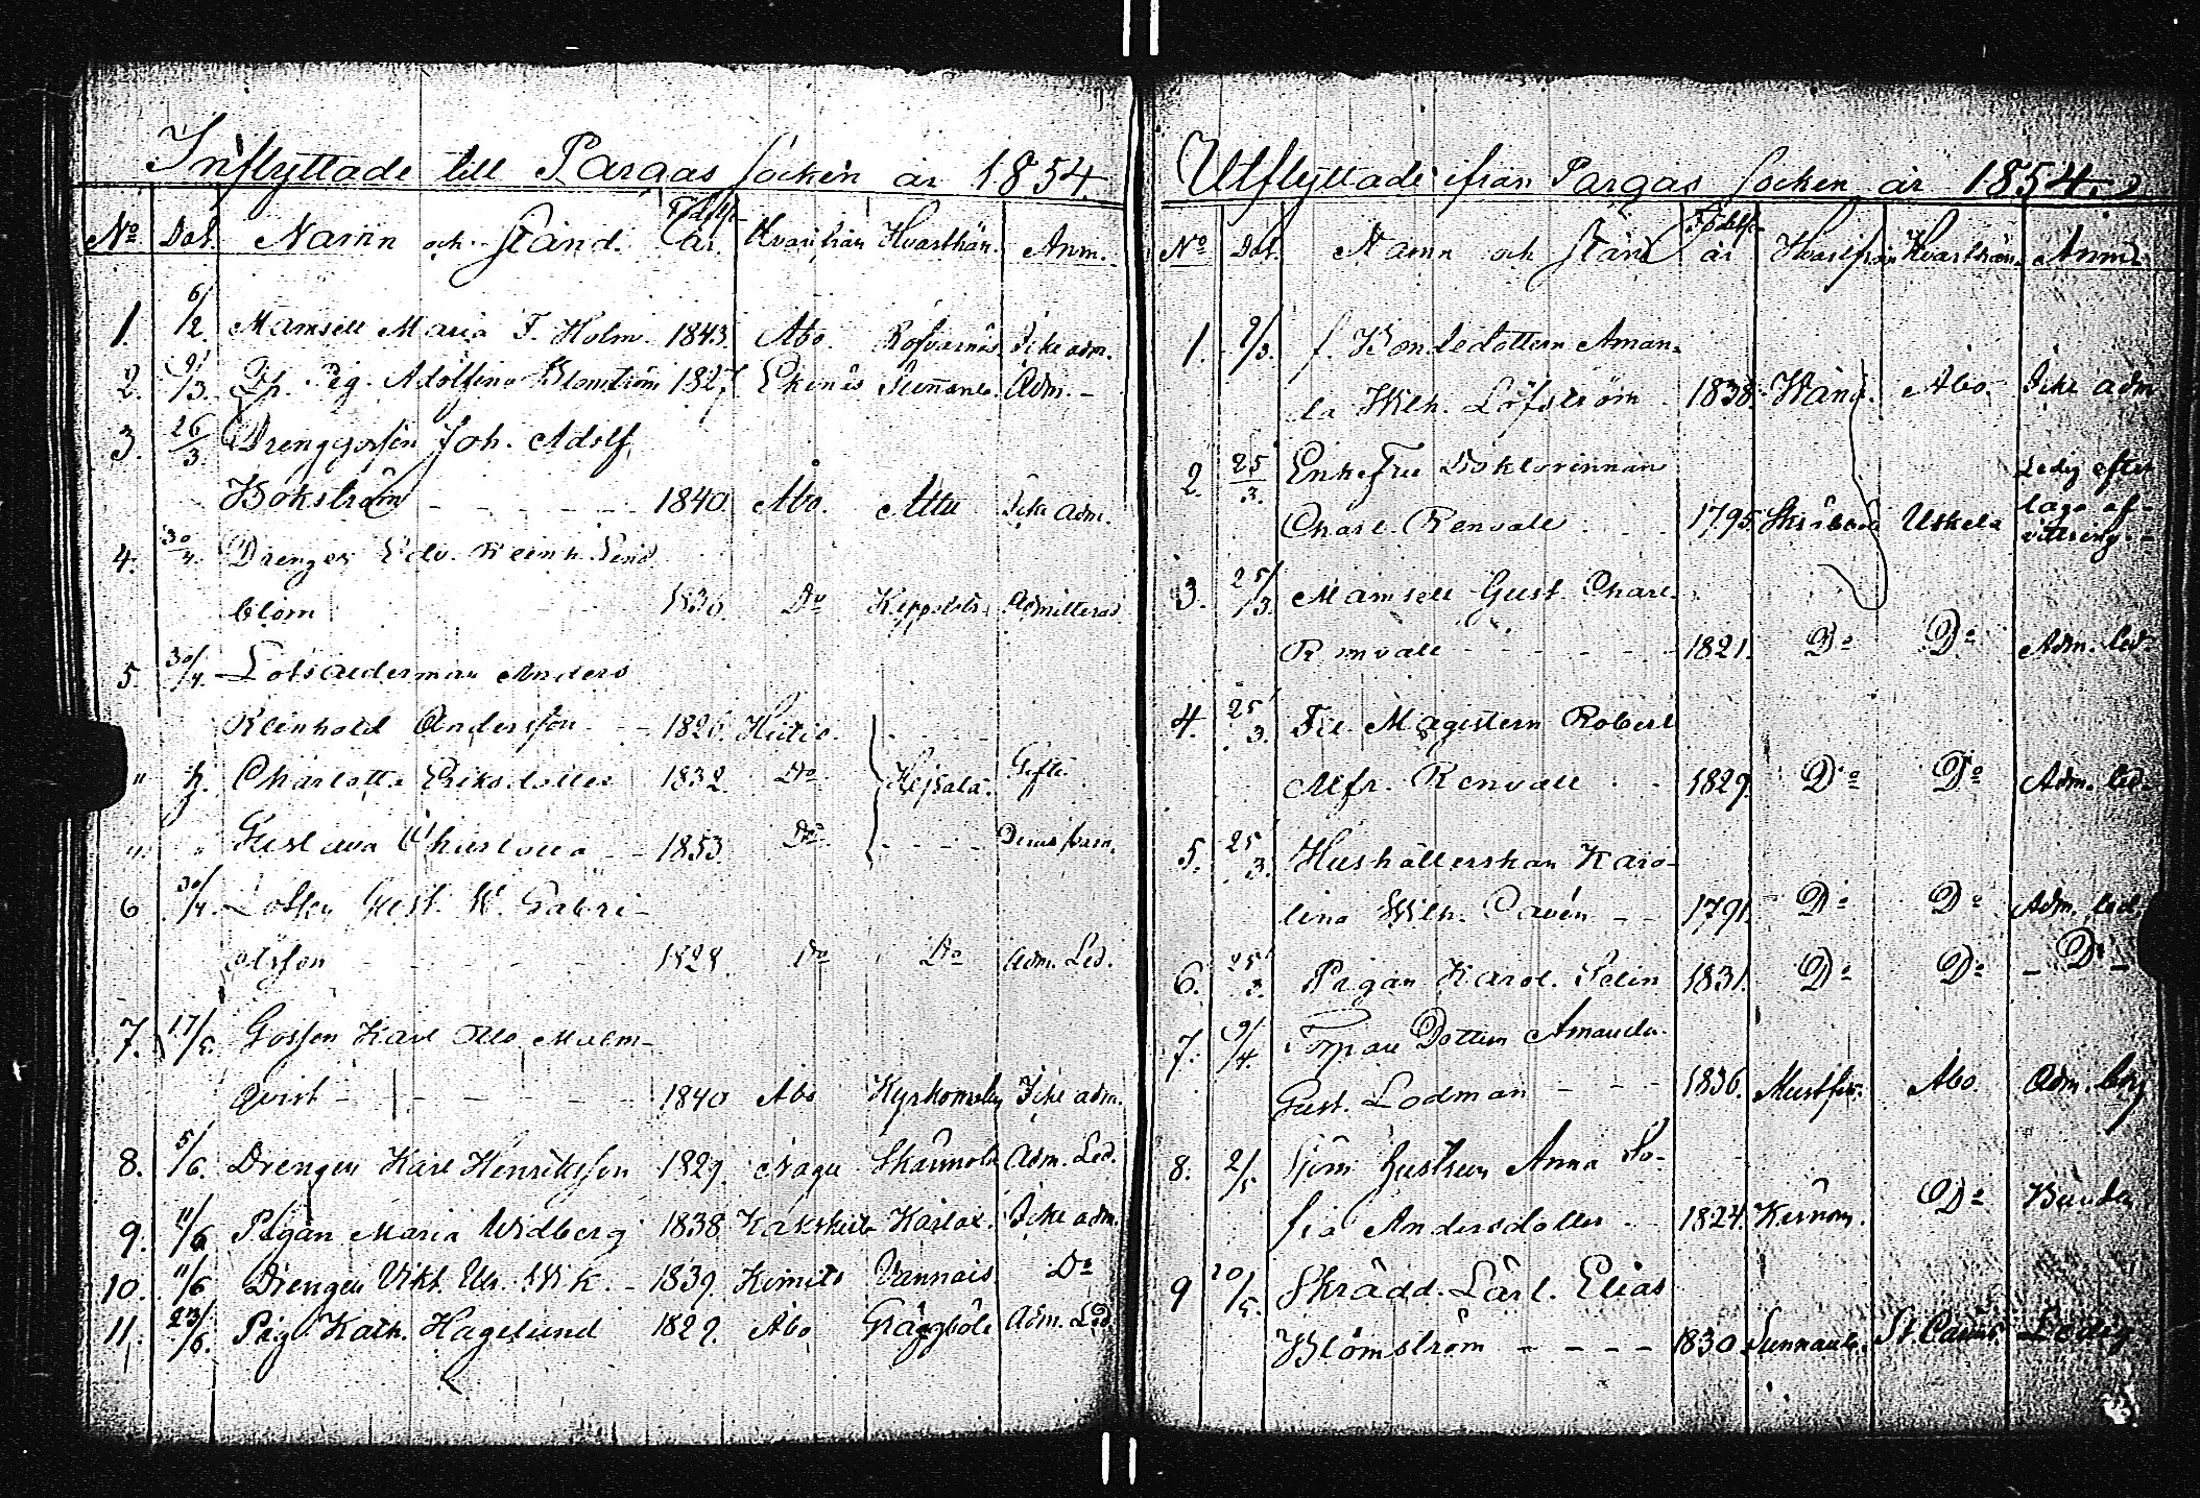 Inflyttade till Pargas Socken år 1854
No Dat. Namn och Stånd. Födelse år. Hvarifrån Hvarthän. Anm.
1. 6/2. Mamsell Maria F. Holm. 1843. Åbo. Rofvarnäs Icke adm.
2. 9/3. Pig. Adolfina Blomström 1827 Ekenäs Sunnanb. Adm.-
3. 26/3. Drenggossen Joh. Adolf
Bokström - - - - - 1840 Åbo. Attu Icke adm.
4. 30/4. Drengen Edv. Reinh. Lind
blom 1836. Do Admitterad
5. 30/4. Lotsålderman Anders
Reinhold Andersson - - 1826. Hitis. - - - -
" h. Charlotta Eriksdotter 1832. Do Gifte.
" " Gustava Charlotta - - 1853. Do - - - -
6 30/4. Lotsen Gust. W. Gabri-
elsson - - - - - 1828. Do Do Adm. Led.
7. 17/5. Gossen Karl Otto Malm-
qvist - - - - - 1840 Åbo Kyrkomoby Icke adm.
8. 5/6. Drengen Karl Henriksson 1829. Nagu Skärmola Adm. Led.
9. 11/6 Pigan Maria Widberg 1838 Kakskerta Karlot. Icke adm.
10. 11/6 Drengen Vikt. Ulr. Wik. - 1839. Kimito Vannais Do
11. 23/6. Pig. Kath. Hagelund 1829. Åbo Gräggböle Adm. Led.
Utflyttade ifrån Pargas Socken år 1854.
No Dat. Namn och Stånd Födelse år Hvarifrån Hvarthän. Anm.
1. 9/3. f. Bondedottern Aman-
da Wilh. Löfström 1838. Åbo. Icke adm
2. 25/3. Enkefru Doktorinnan Ledig efter
Charl. Renvall 1795. Uskela laga af-
vittring. -
3. 25/3. Mamsell Gust. Charl.
Renvall - - - - - 1821. Do Do Adm. led.
4. 25/3. Fil. Magistern Robert
Alfr. Renvall - - 1829. Do Do Adm. led.
5. 25/3. Hushållerskan Karo-
lina Wilh. Pavén - - 1791. Do Do Adm. led.
6. 25/3. Pigan Karol. Selin 1831. Do Do - Do -
7. 9/4. Torpare Dottern Amanda
Gust. Lodman - - - 1836. Mustfin. Åbo Adm.
8. 2/5. Sjöm. hustrun Anna So-
fia Andersdotter - 1824. Kirnom. Do Bunden
9 20/5. Skrädd. Lärl. Elias
Blomström - - - - 1830 Sunnanb. Ledig